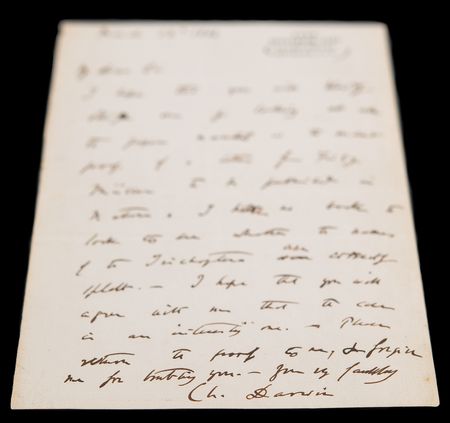 My dear Sir
I hope that you will kindly
oblige me by looking
the
proof of a letter from Fritz
Müller to be published in
Nature. I have no book to
look to see whether the names
of the Trichoptera are correctly
spelt. — I hope that you will
agree with me that the case
is an interesting one. — Please
return the proof to me, & forgive
me for troubling you. — yours very faithfully
Ch. Darwin